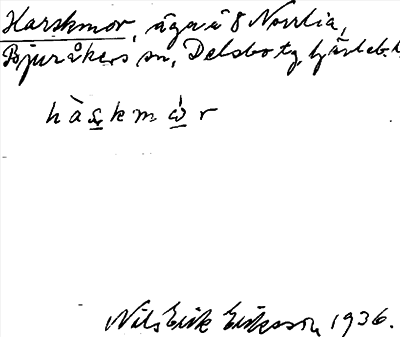 Harskmor, äga å 8 Norrlia,
Bjuråkers sn, Delsbo tg, Gävleb. l.
hàs̲kmὼ̲r
Nils Erik Eriksson 1936.